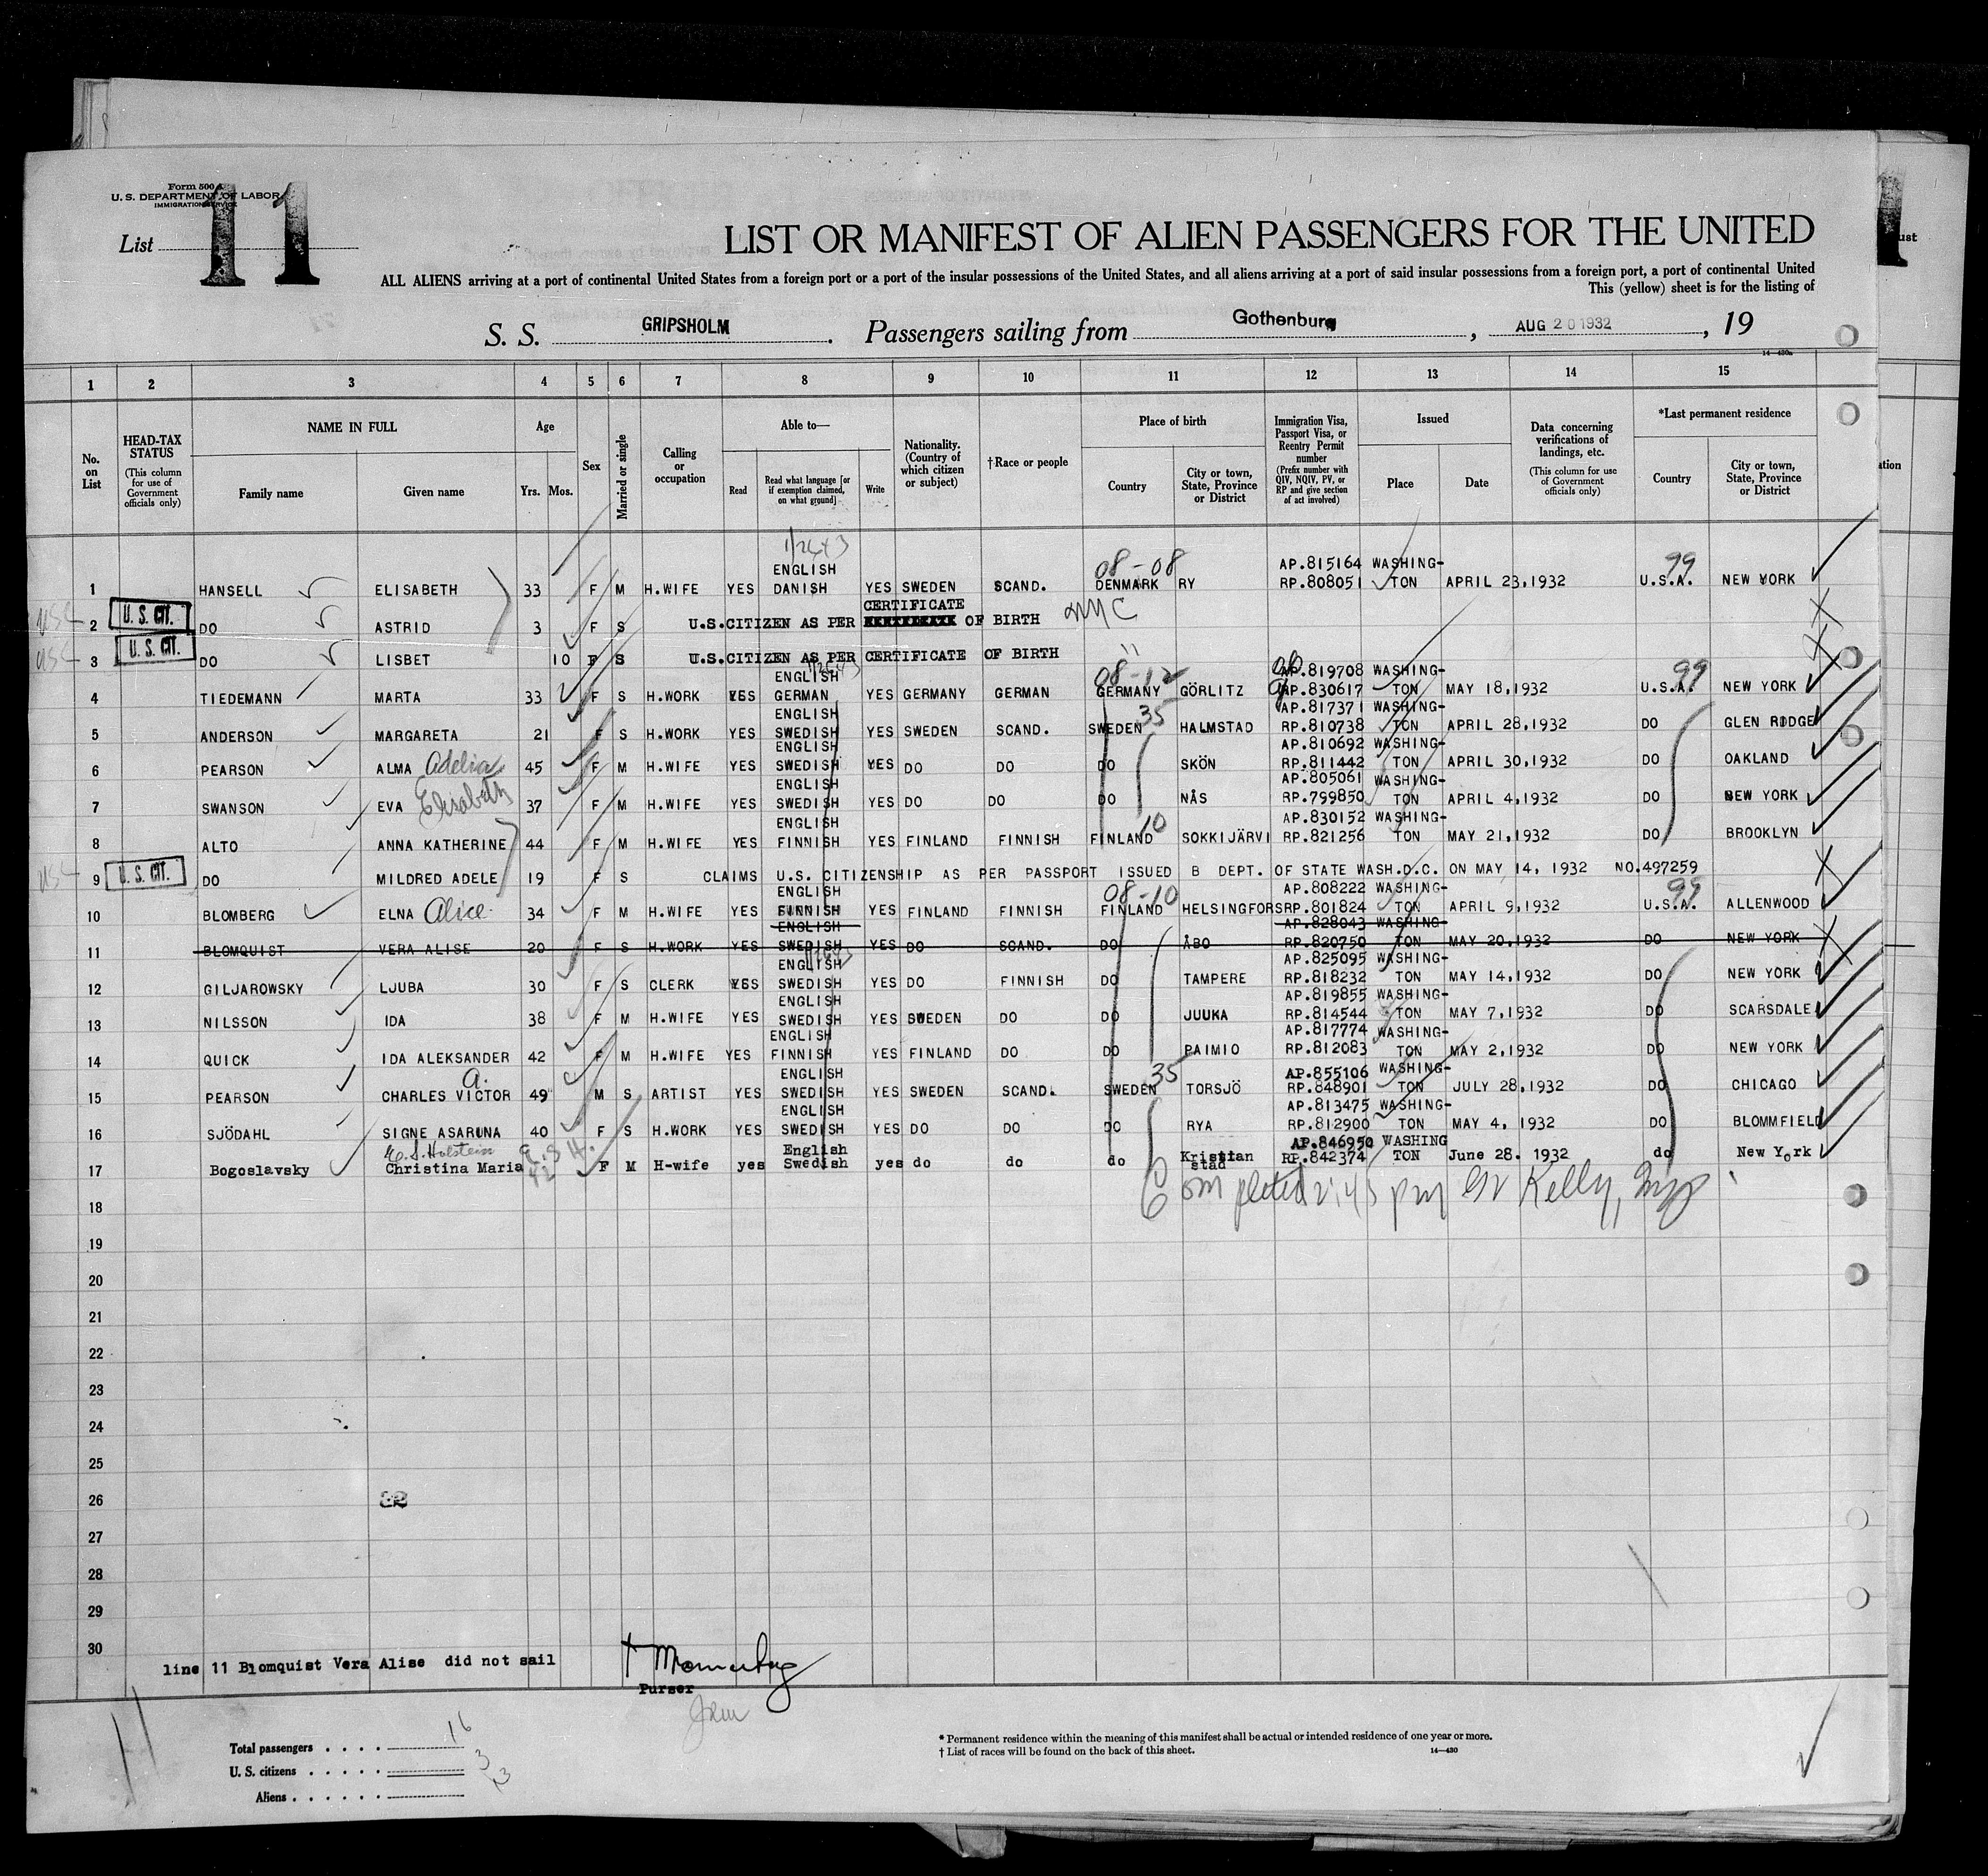 Form 500 A
U. S. DEPARTMENT OF LABOR
IMMIGRATION SERVICE
List 11
LIST OR MANIFEST OF ALIEN PASSENGERS FOR THE UNITED
ALL ALIENS arriving at a port of continental United States from a foreign port or a port of the insular possessions of the United States, and all aliens arriving at a port of said insular possessions from a foreign port, a port of continental United
This (yellow) sheet is for the listing of
S. S. GRIPSHOLM. Passengers sailing from Gothenburg, AUG 20 1932, 19
14—430a
1 2 3 4 5 6 7 8 9 10 11 12 13 14 15
No. on List
HEAD-TAX STATUS
(This column for use of Government officials only)
NAME IN FULL
Family name
Given name
Age
Yrs.
Mos.
Sex
Married or single
Calling or occupation
Able to—
Read
Read what language [or if exemption claimed, on what ground]
Write
Nationality. (Country of which citizen or subject)
†Race or people
Place of birth
Country
City or town, State, Province or District
Immigration Visa, Passport Visa, or Reentry Permit number
(Prefix number with QIV, NQIV, PV, or RP and give section of act involved)
Issued
Place
Date
Data concerning verifications of landings, etc.
(This column for use of Government officials only)
*Last permanent residence
Country
City or town, State, Province or District
ENGLISH 08-08 AP.815164 WASHING- 99
1 HANSELL ELISABETH 33 F M H.WIFE YES DANISH YES SWEDEN SCAND. DENMARK RY RP.808051 TON APRIL 23,1932 U.S.A. NEW YORK
CERTIFICATE
USC 2 U. S. CIT. DO ASTRID 3 F S U.S.CITIZEN AS PER OF BIRTH NYC
USC 3 U. S. CIT. DO LISBET 10 F S U.S.CITIZEN AS PER CERTIFICATE OF BIRTH
ENGLISH 08-12 AP.819708 WASHING- 99
4 TIEDEMANN MARTA 33 F S H.WORK YES GERMAN YES GERMANY GERMAN GERMANY GÖRLITZ RP.830617 TON MAY 18,1932 U.S.A. NEW YORK
ENGLISH 35 AP.817371 WASHING-
5 ANDERSON MARGARETA 21 F S H.WORK YES SWEDISH YES SWEDEN SCAND. SWEDEN HALMSTAD RP.810738 TON APRIL 28,1932 DO GLEN RIDGE
ENGLISH AP.810692 WASHING-
6 PEARSON ALMA Adelia 45 F M H.WIFE YES SWEDISH YES DO DO DO SKÖN RP.811442 TON APRIL 30,1932 DO OAKLAND
ENGLISH AP.805061 WASHING-
7 SWANSON EVA Elisabeth 37 F M H.WIFE YES SWEDISH YES DO DO DO NÅS RP.799850 TON APRIL 4,1932 DO NEW YORK
ENGLISH 10 AP.830152 WASHING-
8 ALTO ANNA KATHERINE 44 F M H.WIFE YES FINNISH YES FINLAND FINNISH FINLAND SOKKIJÄRVI RP.821256 TON MAY 21,1932 DO BROOKLYN
USC 9 U. S. CIT. DO MILDRED ADELE 19 F S CLAIMS U.S. CITIZENSHIP AS PER PASSPORT ISSUED B DEPT. OF STATE WASH.D.C. ON MAY 14, 1932 NO.497259
ENGLISH 08-10 AP.808222 WASHING- 99
10 BLOMBERG ELNA Alice 34 F M H.WIFE YES FINNISH YES FINLAND FINNISH FINLAND HELSINGFORS RP.801824 TON APRIL 9,1932 U.S.A. ALLENWOOD
ENGLISH AP.828043 WASHING-
11 BLOMQUIST VERA ALISE 20 F S H.WORK YES SWEDISH YES DO SCAND. DO ÅBO RP.820750 TON MAY 20,1932 DO NEW YORK
ENGLISH AP.825095 WASHING-
12 GILJAROWSKY LJUBA 30 F S CLERK YES SWEDISH YES DO FINNISH DO TAMPERE RP.818232 TON MAY 14,1932 DO NEW YORK
ENGLISH AP.819855 WASHING-
13 NILSSON IDA 38 F M H.WIFE YES SWEDISH YES SWEDEN DO DO JUUKA RP.814544 TON MAY 7,1932 DO SCARSDALE
ENGLISH AP.817774 WASHING-
14 QUICK IDA ALEKSANDER 42 F M H.WIFE YES FINNISH YES FINLAND DO DO PAIMIO RP.812083 TON MAY 2,1932 DO NEW YORK
A. ENGLISH 35 AP.855106 WASHING-
15 PEARSON CHARLES VICTOR 49 M S ARTIST YES SWEDISH YES SWEDEN SCAND. SWEDEN TORSJÖ RP.848901 TON JULY 28,1932 DO CHICAGO
ENGLISH AP.813475 WASHING-
16 SJÖDAHL SIGNE ASARUNA 40 F S H.WORK YES SWEDISH YES DO DO DO RYA RP.812900 TON MAY 4, 1932 DO BLOMMFIELD
E. S. Holstein E.S.H. English AP.846950 WASHING
17 Bogoslavsky Christina Maria 42 F M H-wife yes Swedish yes do do do Kristian stad RP.842374 TON June 28. 1932 do New York
Completed
Kelly, Insp
18
19
20
21
22
23
24
25
26
27
28
29
30
line 11 Blomquist Vera Alise did not sail
Purser
Total passengers 16
U. S. citizens 3
Aliens 13
* Permanent residence within the meaning of this manifest shall be actual or intended residence of one year or more.
† List of races will be found on the back of this sheet.
14—430